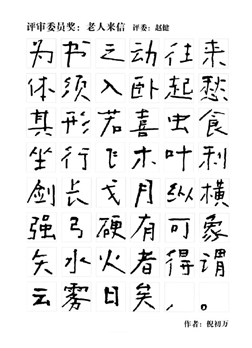 评审委员奖：老人来信 评委：赵健
为书之动往来
体须入卧起愁
其形若喜虫食
坐行飞木叶利
剑长戈月纵横
强弓硬有可象
矢水火者得谓
云雾日矣，。
作者：倪初万